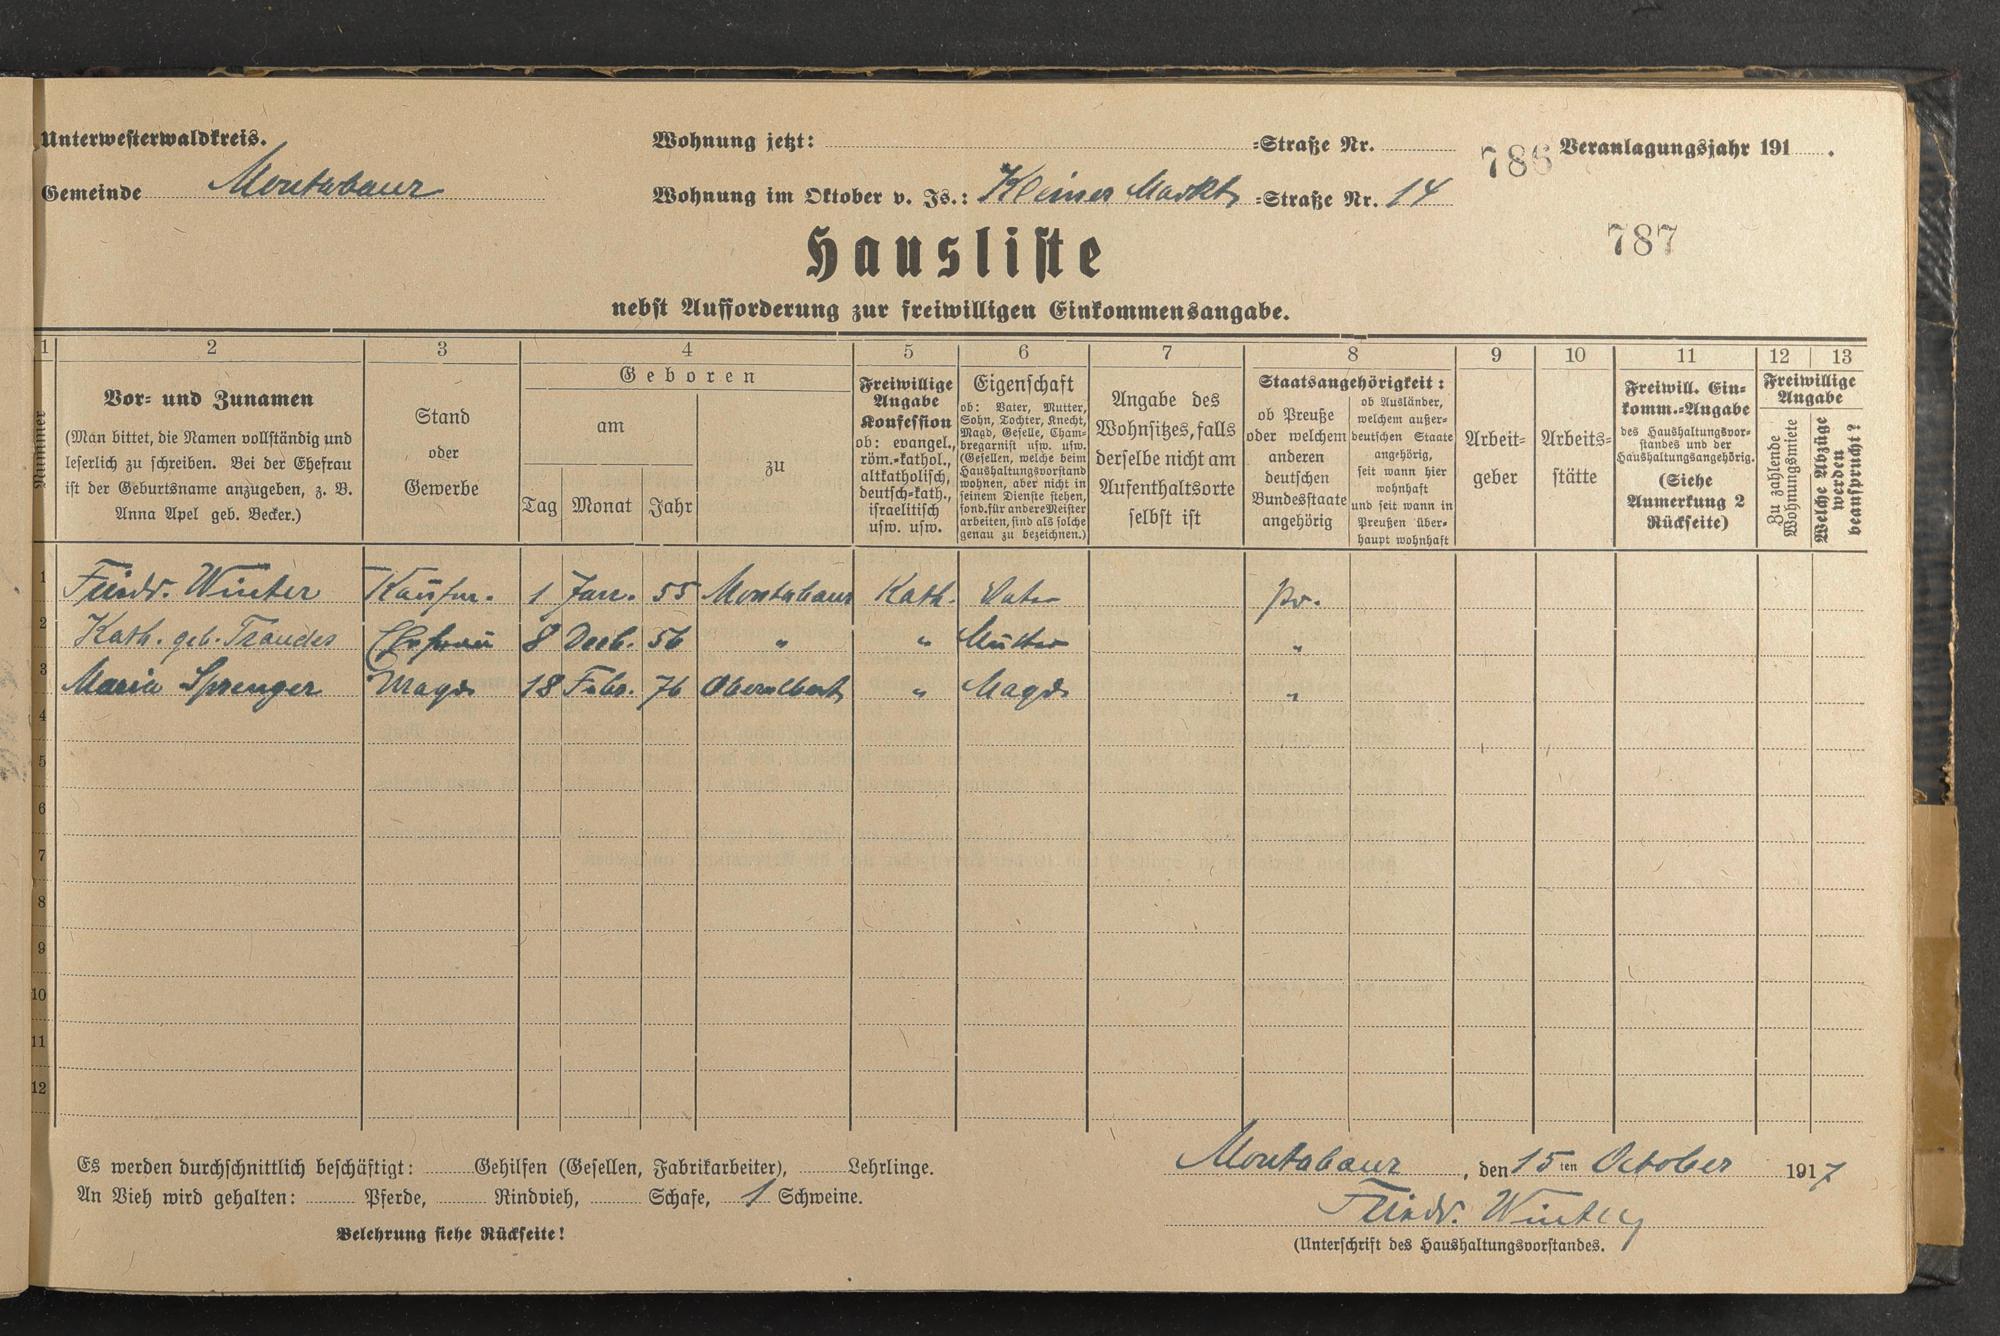 Unterwesterwaldkreis.
Wohnung jetzt: -Straße Nr.
786 Veranlagungsjahr 191 .
Gemeinde Montabaur
Wohnung im Oktober v. Js.: Kleiner Markt -Straße Nr. 14
787
Hausliste
nebst Aufforderung zur freiwilligen Einkommensangabe.
1 2 3 4 5 6 7 8 9 10 11 12 13
Nummer
Vor- und Zunamen
(Man bittet, die Namen vollständig und
leserlich zu schreiben. Bei der Ehefrau
ist der Geburtsname anzugeben, z. B.
Anna Apel geb. Becker.)
Stand
oder
Gewerbe
Geboren
am
Tag Monat Jahr
zu
Freiwillige
Angabe
Konfession
ob: evangel.,
röm.-kathol.,
altkatholisch,
deutsch-kath.,
israelitisch
usw. usw.
Eigenschaft
ob: Vater, Mutter,
Sohn, Tochter, Knecht,
Magd, Geselle, Cham-
bregarnist usw. usw.
(Gesellen, welche beim
Haushaltungsvorstand
wohnen, aber nicht in
seinem Dienste stehen,
sond. für andere Meister
arbeiten, sind als solche
genau zu bezeichnen.)
Angabe des
Wohnsitzes, falls
derselbe nicht am
Aufenthaltsorte
selbst ist
Staatsangehörigkeit:
ob Preuße
oder welchem
anderen
deutschen
Bundesstaate
angehörig
ob Ausländer,
welchem außer-
deutschen Staate
angehörig,
seit wann hier
wohnhaft
und seit wann in
Preußen über-
haupt wohnhaft
Arbeit-
geber
Arbeits-
stätte
Freiwill. Ein-
komm.-Angabe
des Haushaltungsvor-
standes und der
Haushaltungsangehörig.
(Siehe
Anmerkung 2
Rückseite)
Freiwillige
Angabe
Zu zahlende
Wohnungsmiete
Welche Abzüge
werden
beansprucht?
1 Friedr. Winter Kaufm. 1 Jan. 55 Montabaur Kath. Vater pr.
2 Kath. geb. Ehefrau 8 Decb. 56 " " Mutter "
3 Maria Sprenger Magd 18 Febr. 76 " Magd "
4
5
6
7
8
9
10
11
12
Es werden durchschnittlich beschäftigt: Gehilfen (Gesellen, Fabrikarbeiter), Lehrlinge.
An Vieh wird gehalten: Pferde, Rindvieh, Schafe, 1 Schweine.
Belehrung siehe Rückseite!
Montabaur, den 15ten October 1917
Friedr. Winter
(Unterschrift des Haushaltungsvorstandes.